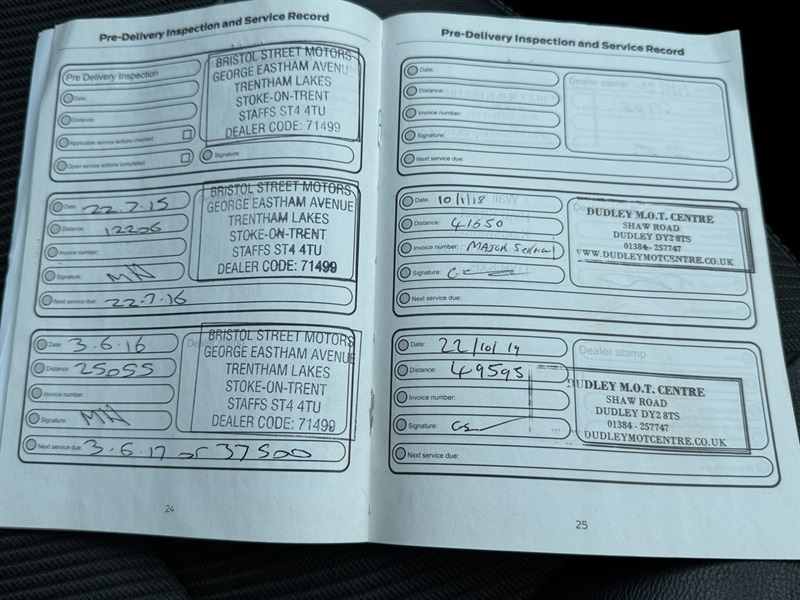 Pre-Delivery Inspection and Service Record
Pre Delivery Inspection
Date:
Distance:
Applicable service actions checked
Open service actions completed
Signature:
BRISTOL STREET MOTORS
GEORGE EASTHAM AVENU
TRENTHAM LAKES
STOKE-ON-TRENT
STAFFS ST4 4TU
DEALER CODE: 71499
Date: 22.7.15
Distance: 12206
Invoice number:
Signature: MN
Next service due: 22-7-16
BRISTOL STREET MOTORS
GEORGE EASTHAM AVENUE
TRENTHAM LAKES
STOKE-ON-TRENT
STAFFS ST4 4TU
DEALER CODE: 71499
Date: 3.6.16
Distance: 25055
Invoice number:
Signature: MN
Next service due: 3.6.17 or 37500
BRISTOL STREET MOTORS
GEORGE EASTHAM AVENUE
TRENTHAM LAKES
STOKE-ON-TRENT
STAFFS ST4 4TU
DEALER CODE: 71499
24
Pre-Delivery Inspection and Service Record
Date:
Distance:
Invoice number:
Signature:
Next service due:
Dealer stamp
Date: 10/1/18
Distance: 41650
Invoice number: MAJOR
Signature:
Next service due:
DUDLEY M.O.T. CENTRE
SHAW ROAD
DUDLEY DY2 8TS
01384 - 257747
WWW.DUDLEYMOTCENTRE.CO.UK
Date: 22/10/19
Distance: 49595
Invoice number:
Signature:
Next service due:
Dealer stamp
DUDLEY M.O.T. CENTRE
SHAW ROAD
DUDLEY DY2 8TS
01384 - 257747
DUDLEYMOTCENTRE.CO.UK
25